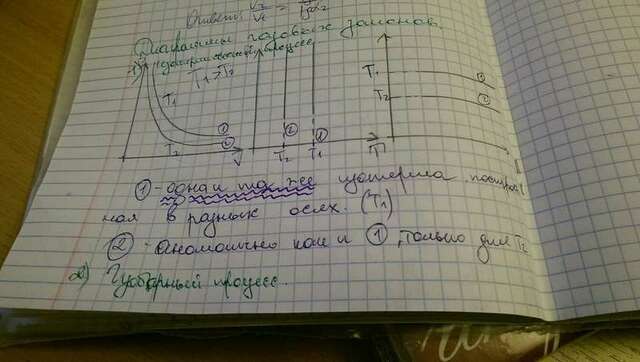 Ответ: V₂/V₁ =
Диаграммы газовых законов.
1) Изотермический процесс
T₁ > T₂
T₁
T₂
1
2
V
2
1
T₂ T₁ T
T₁
T₂
1
2
① - одна и та же изотерма построен
ная в разных осях. (T₁)
② - аналогично как и ①, только для T₂
2) Изобарный процесс.